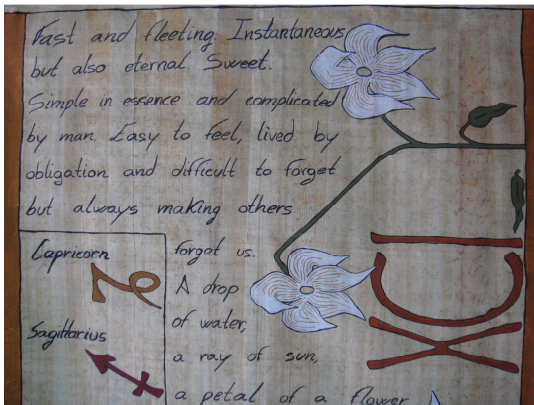 Fast and fleeting. Instantaneous
but also eternal. Sweet.
Simple in essence and complicated
by man. Easy to feel, lived by
obligation and difficult to forget
but always making others
forget us.
A drop
of water,
a ray of sun,
a petal of a flower
Capricorn
Sagittarius